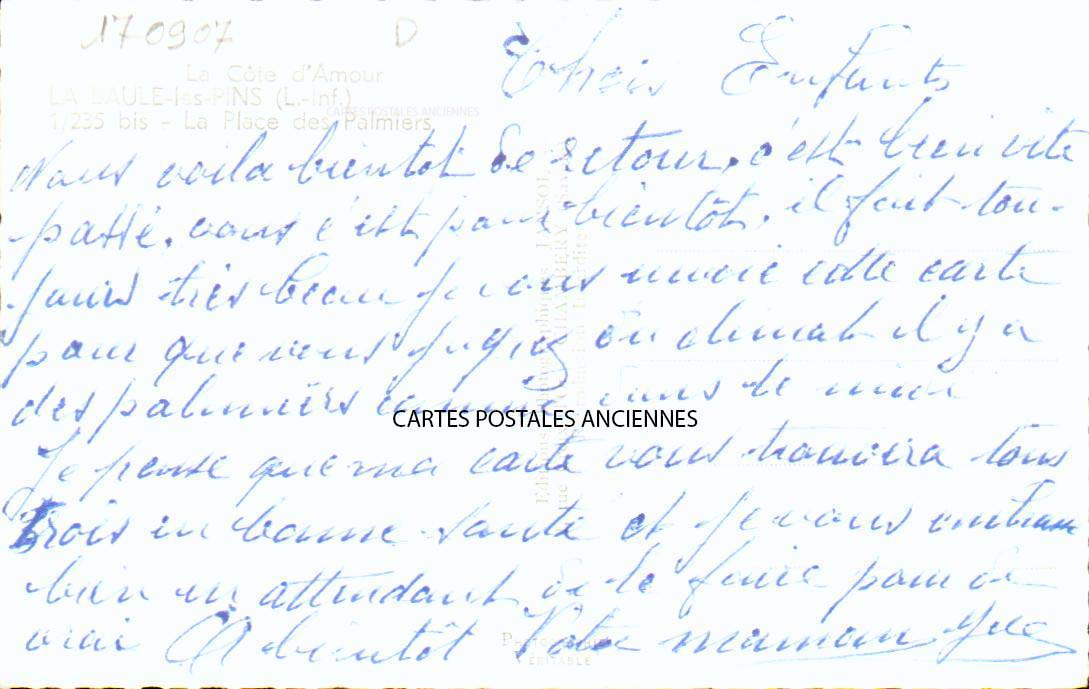 170907 D
La Côte d'Amour
LA BAULE-les-PINS (L.-Inf.)
CARTES POSTALES ANCIENNES
1/235 bis - La Place des Palmiers
Chers Enfants
Nous voila bientot de retour, c'est bien vite
passé, vous c'est pour bientôt, il fait tou-
jours très beau je vous envoie cette carte
pour que vous jugiez du climat il y a
des palmiers comme dans le midi
CARTES POSTALES ANCIENNES
Je pense que ma carte vous trouvera tous
trois en bonne santé et je vous embrasse
bien en attendant de le faire pour de
vrai A bientôt Votre maman
VÉRITABLE